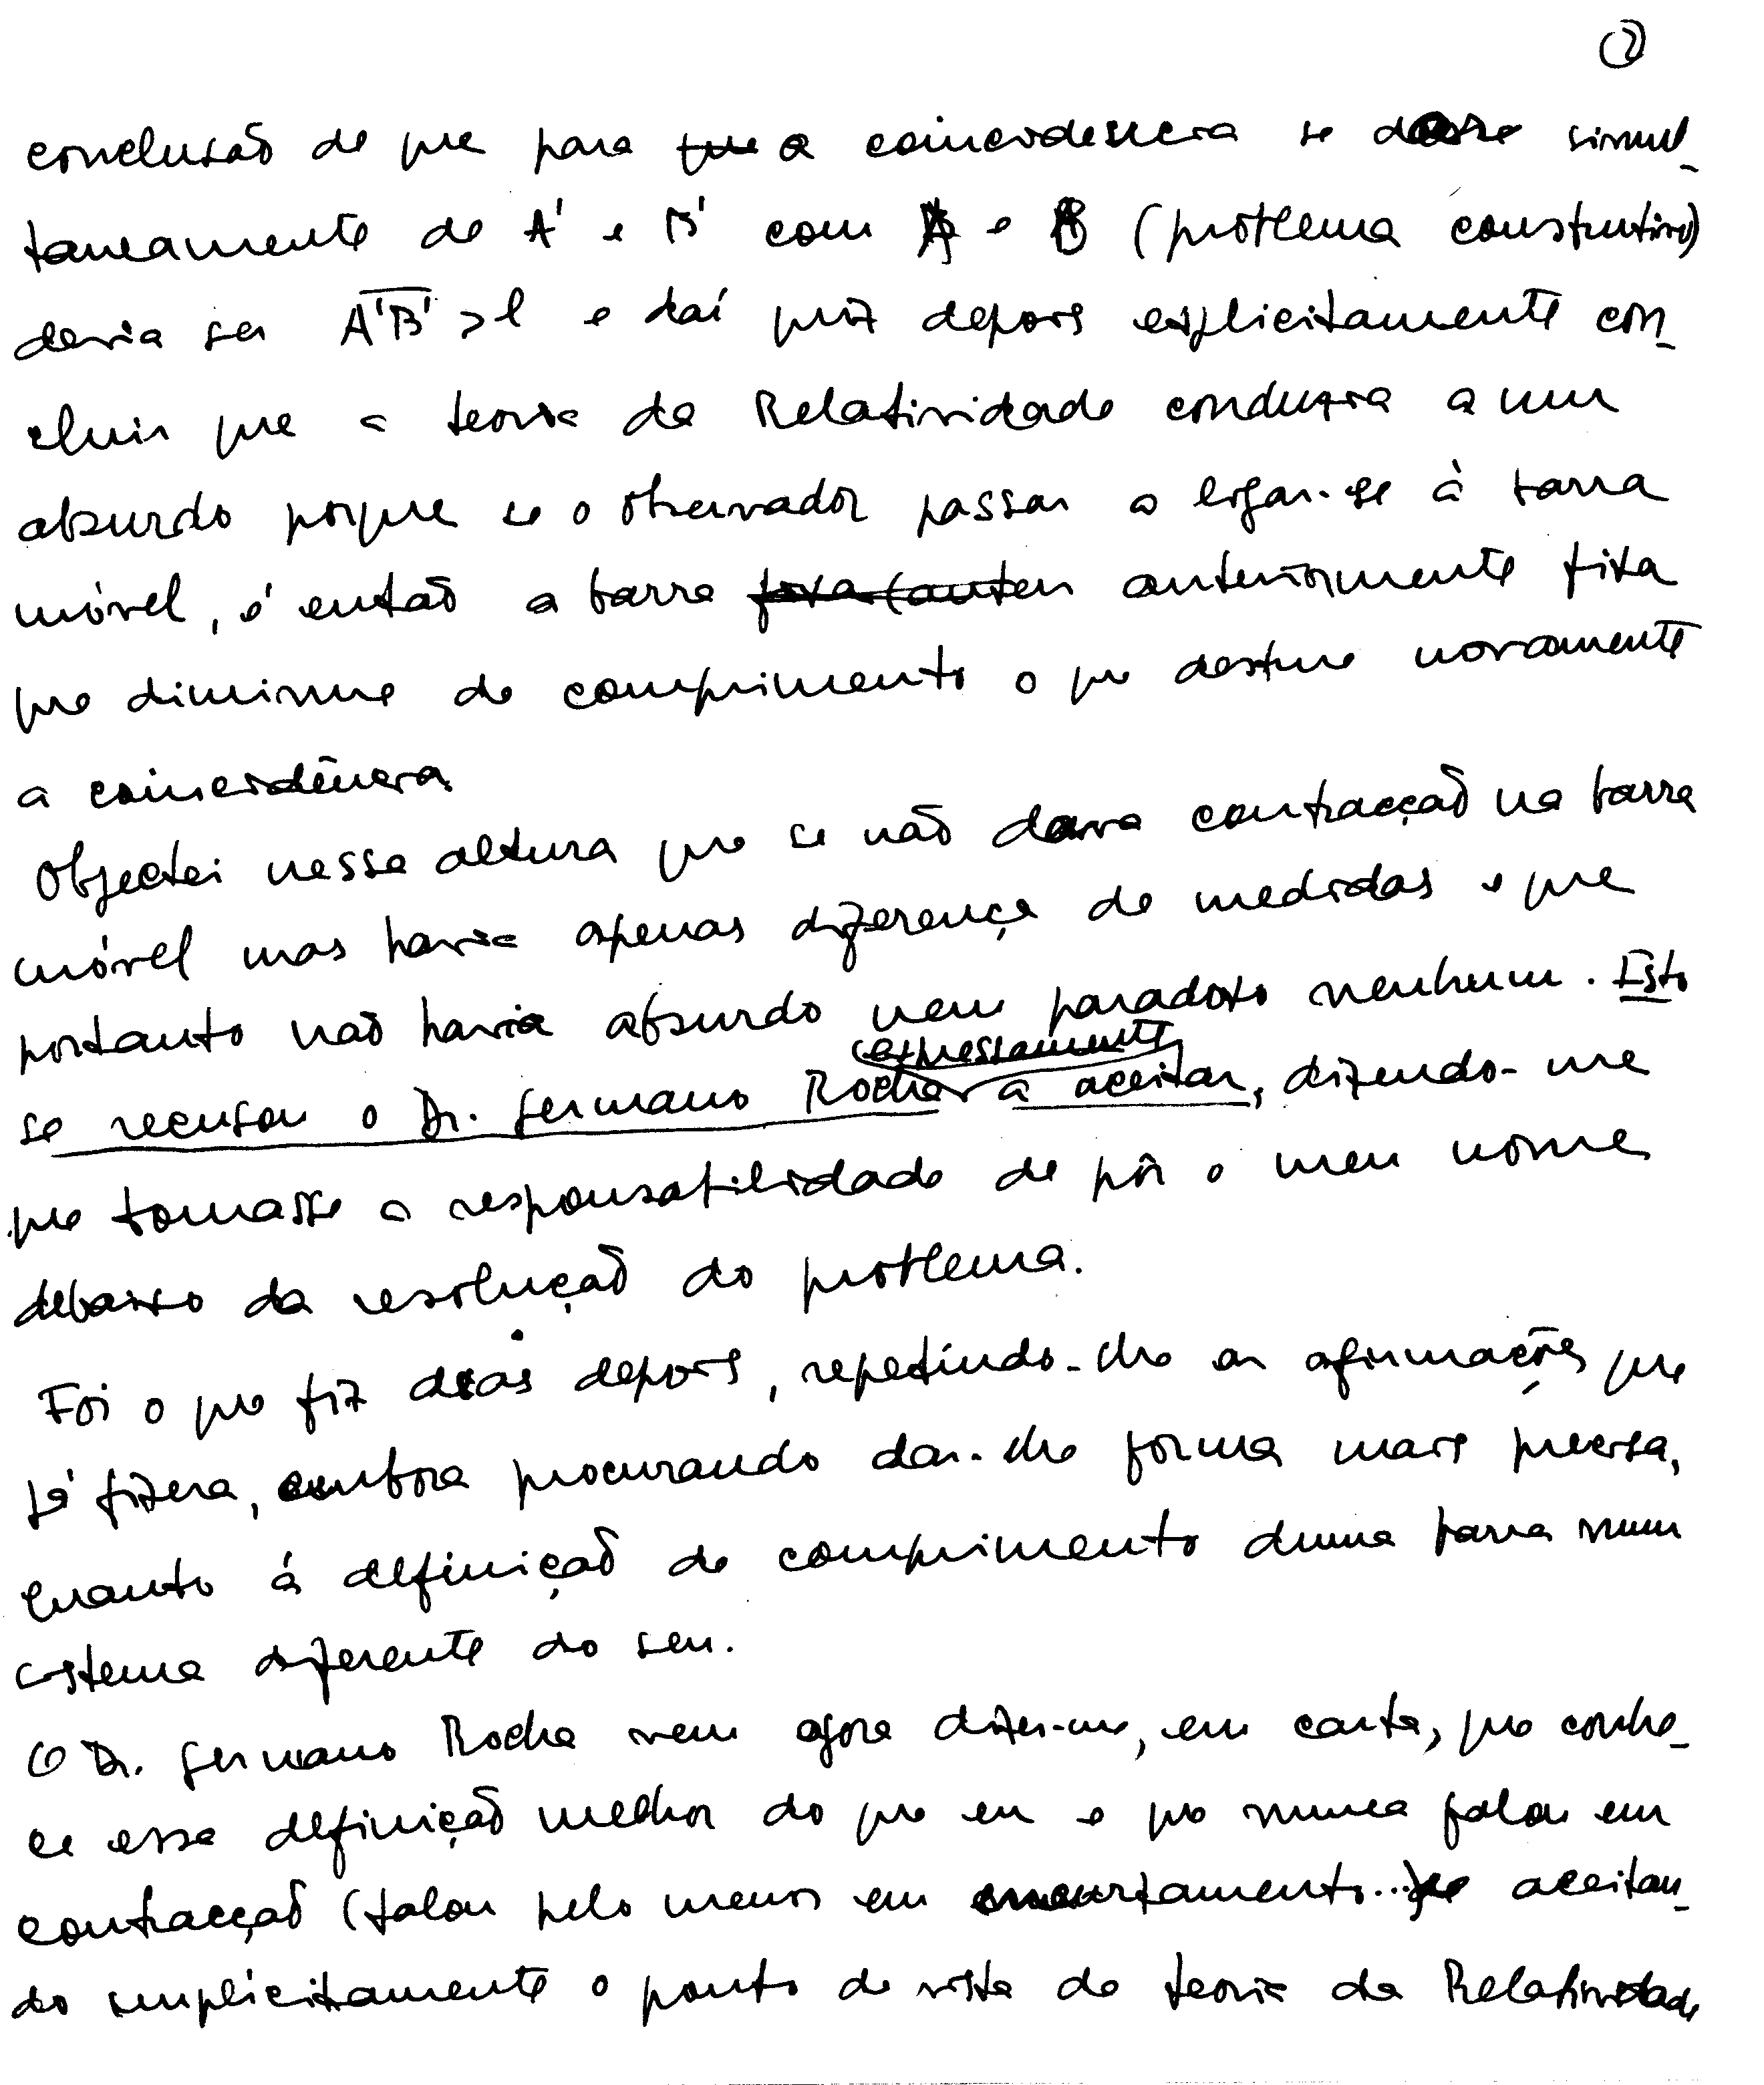 ②
conclusão de que para que a coincidência se desse simul-
taneamente de A' e B' com A e B (problema construtivo)
devia ser A'B' > l e daí quiz depois explicitamente con-
cluir que a teoria da Relatividade conduzia a um
absurdo porque se o observador passar a ligar-se à barra
móvel, é então a barra fixa (anteri anteriormente fixa
que diminue de comprimento o que destrue novamente
a coincidência.
Objectei nessa altura que se não dava contracção na barra
móvel mas havia apenas diferença de medidas e que
portanto não havia absurdo nem paradoxo nenhum. Isto
expressamente
se recusou o Dr. Germano Rocha a aceitar, dizendo-me
que tomasse a responsabilidade de pôr o meu nome
debaixo da resolução do problema.
Foi o que fiz dias depois, repetindo-lhe as afirmações que
já fizera, embora procurando dar-lhe forma mais precisa,
quanto á definição de comprimento duma barra num
sistema diferente do seu.
O Dr. Germano Rocha vem agora dizer-me, em carta, que conhe-
ce essa definição melhor do que eu e que nunca falou em
contracção (falou pelo menos em encurtamento...) aceitan-
do implicitamente o ponto de vista da teoria da Relatividade